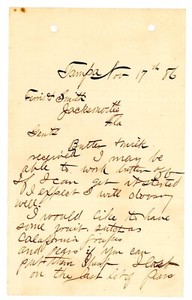 Tampa Nov 17th 86
Ferris & Smith
Jacksonville
Fla
Gents
Butter & milk
received I may be
able to work butter
if I can get it started
I expect I will do very
well
I would like to have
some fruit such as
California Grapes
and Pears if you can
put them I lost
on the last lot of Pears